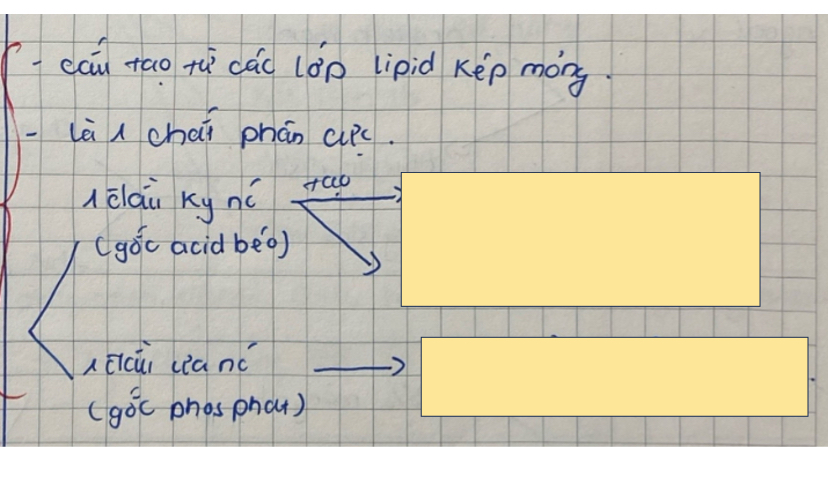 - cấu tạo từ các lớp lipid kép mỏng.
- là 1 chất phân cực.
1 đầu kỵ nc
tạo
(gốc acid béo)
1 đầu ưa nc
(gốc phosphat)